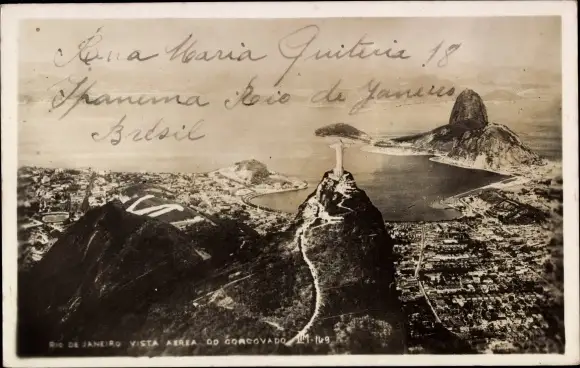 Rua Maria Quiteria 18
Ipanema Rio de Janeiro
Brésil
RIO DE JANEIRO VISTA AEREA DO CORCOVADO LM-149